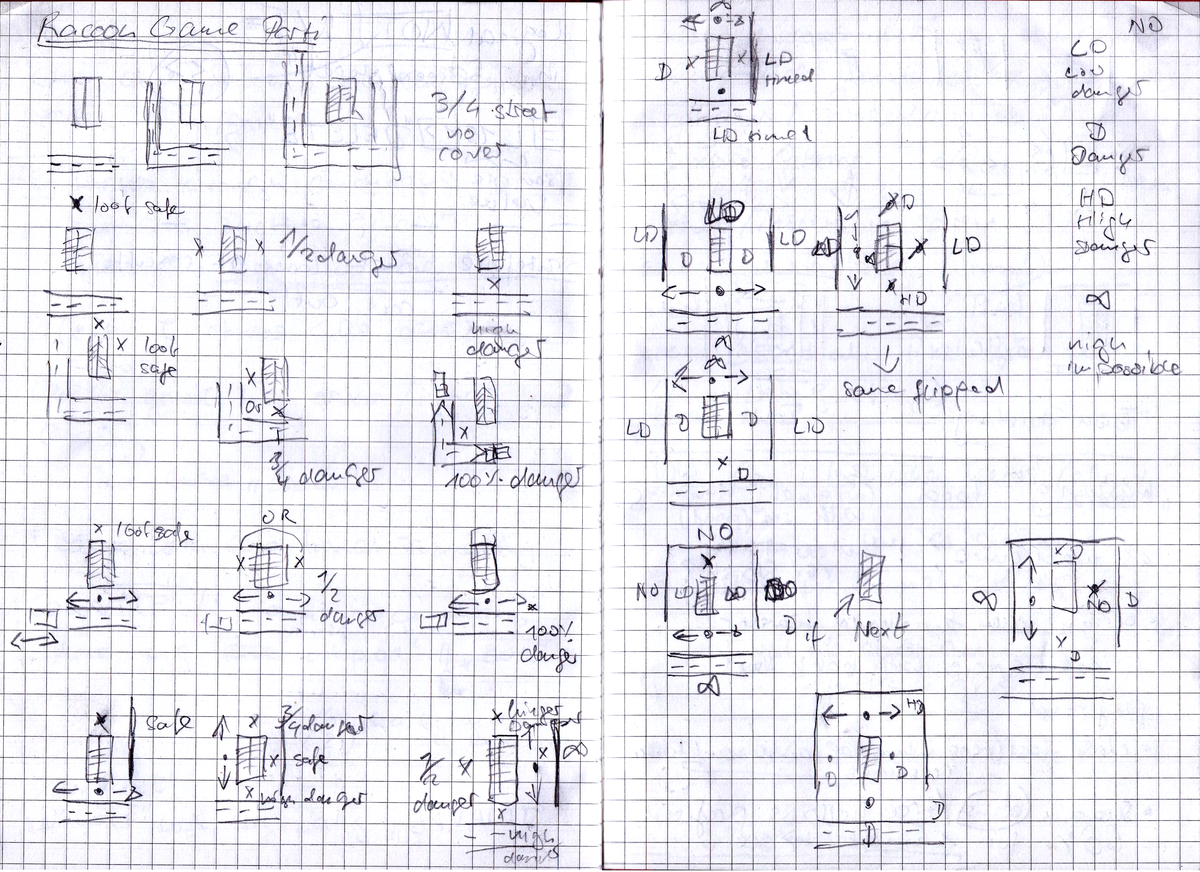 Racoon Game Part i
3/4 street
no
cover
x loot safe
x x 1/2 danger
x
high
danger
x
x loot
safe
x
Or x
3/4 danger
x
100% danger
x loot safe
OR
x x
1/2
danger
x
100%
danger
x safe
x 3/4 danger
x safe
x high danger
x
1/2 x x ∞
danger
x
high
∞
D x x LD
timed
LD timed
NO
LD
Low
danger
D
Danger
HD
High
danger
∞
high
impossible
LD
LD D D LD
∞
xD
x LD
x HD
same flipped
∞
LD D D LD
x D
NO
x
NO LD
D if Next
∞
x D
∞ NO D
x D
HD
D D
D
D